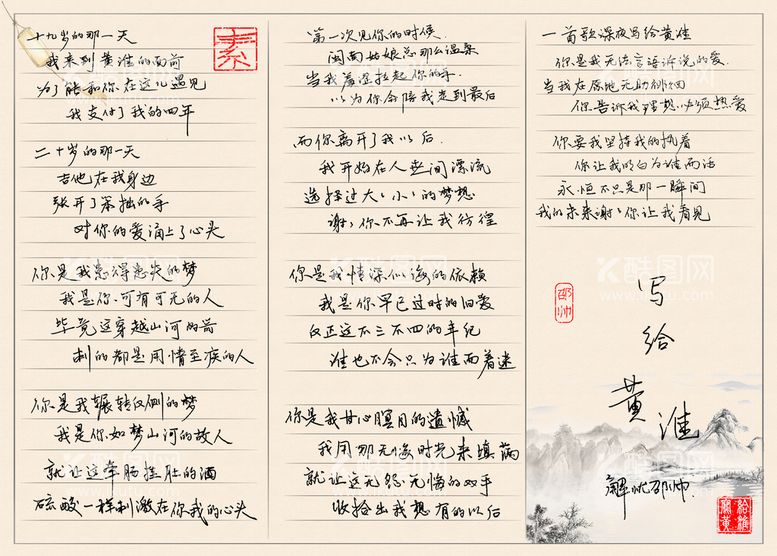 十九岁的那一天
我来到黄淮的面前
为了能和你在这儿遇见
我支付了我的四年
二十岁的那一天
吉他在我身边
张开了笨拙的手
对你的爱涌上了心头
你是我患得患失的梦
我是你可有可无的人
毕竟这穿越山河的箭
刺的都是用情至疾的人
你是我辗转反侧的梦
我是你如梦山河的故人
就让这牵肠挂肚的酒
硫酸一样刺激在你我的心头
第一次见你的时候
闽南姑娘总那么温柔
当我羞涩拉起你的手
以为你会陪我走到最后
而你离开了我以后
我开始在人世间漂流
选择过大大小小的梦想
谢谢你不再让我彷徨
你是我情深似海的依赖
我是你早已过时的旧爱
仅正这不三不四的年纪
谁也不会只为谁而着迷
你是我甘心瞑目的遗憾
我用那无悔时光来填满
就让这无怨无悔的双手
收拾出我想有的以后
一首歌深夜写给黄淮
你是我无法言语诉说的爱
当我在原地无助徘徊
你告诉我理想必须热爱
你要我坚持我的执着
你让我明白为谁而活
永恒不只是那一瞬间
我的未来谢谢你让我看见
写给
黄淮
解忧邵帅
邵帅